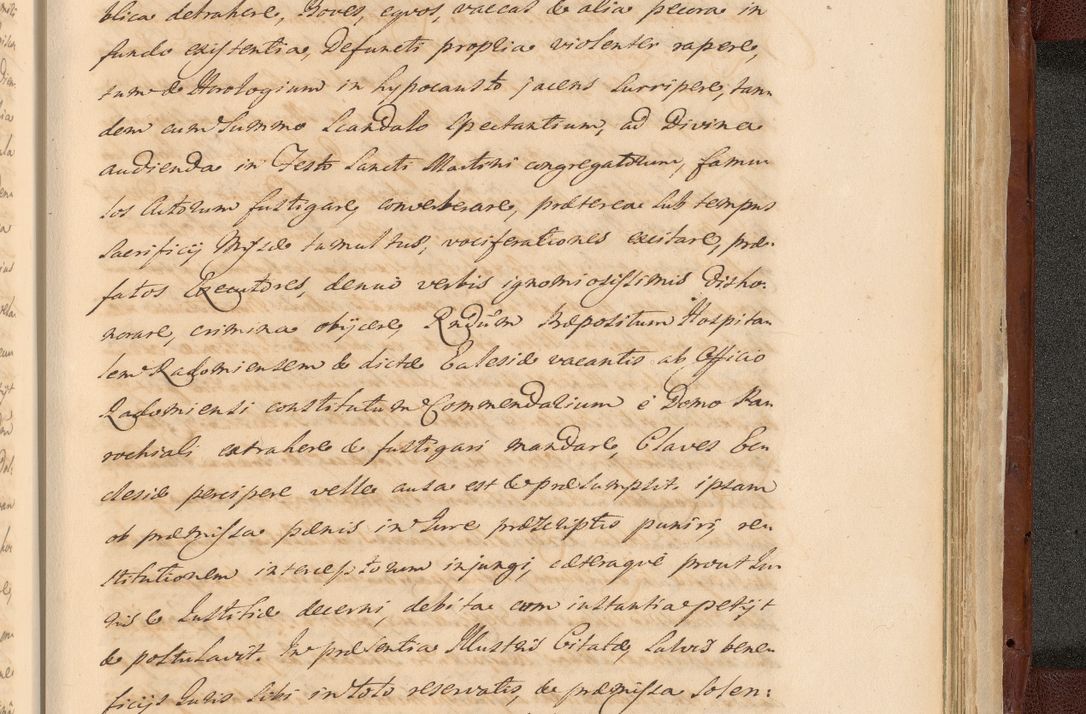 blica detrahere, Boves, equos, vaccas & alia pecora in
fundo existentia, Defuncti propria violenter rapere,
tum & Horologium in hypocausto jacens surripere, tan
dem cum summo scandalo spectantium, ad Divina
audienda in Festo Sancti Martini congregatorum, famu
los Actorum fustigare, converberare, præterea sub tempus
sacrificij Myssæ tumultus, vociferationes excitare, præ-
fatos Executores, denuò verbis ignomiosissimis disho-
norare, crimina obijcere, Rndũm Præpositum Hospita
lem Radomiensem & dictæ Eclesiæ vacantis ab Officio
Radomiensi constitutum Commendarium è Domo Pa
rochiali extrahere & fustigari mandare, Claves Ec
clesiæ percipere velle ausa est & præsumpsit. ipsam
ob præmissa pænis in Jure præscriptis puniri, re
stitutionem interceptorum injungi, cæteraque prout Ju
ris & Justitiæ decerni, debita cum instantia petijt
& postulavit. In præsentia Illustris Citatæ, salvis bene
ficijs Juris sibi in toto reservatis, & præmissa solen: